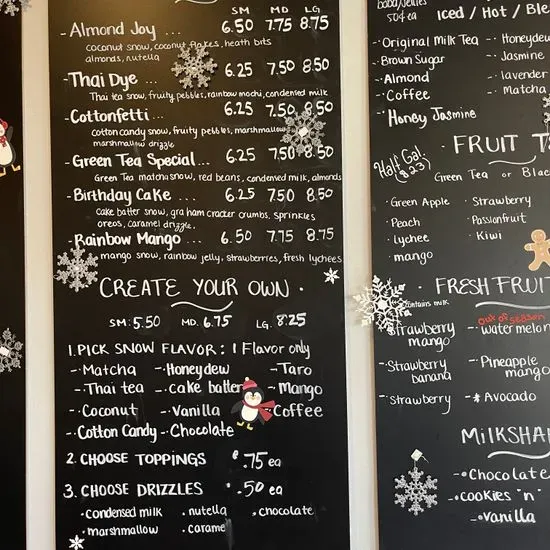 SM MD LG
- Almond Joy ... 6.50 7.75 8.75
coconut snow, coconut flakes, heath bits
almonds, nutella
- Thai Dye ... 6.25 7.50 8.50
Thai tea snow, fruity pebbles, rainbow mochi, condensed milk
- Cottonfetti ... 6.25 7.50 8.50
cotton candy snow, fruity pebbles, marshmallow
marshmallow drizzle
- Green Tea Special ... 6.25 7.50 8.50
Green Tea matcha snow, red beans, condensed milk, almonds
- Birthday Cake ... 6.25 7.50 8.50
cake batter snow, graham cracker crumbs, sprinkles
oreos, caramel drizzle.
- Rainbow Mango ... 6.50 7.75 8.75
mango snow, rainbow jelly, strawberries, fresh lychees
CREATE YOUR OWN
SM: 5.50 MD. 6.75 LG. 8.25
1. PICK SNOW FLAVOR: 1 Flavor only
- Matcha - Honeydew - Taro
- Thai tea - cake batter - Mango
- Coconut - Vanilla - Coffee
- Cotton Candy - Chocolate
2. CHOOSE TOPPINGS .75 ea
3. CHOOSE DRIZZLES .50 ea
• condensed milk • nutella • chocolate
• marshmallow • caramel
boba/jellies
50¢ ea
Iced / Hot / Ble
- Original Milk Tea - Honeydew
- Brown Sugar - Jasmine
- Almond - lavender
- Coffee - Matcha
- Honey Jasmine
FRUIT T
Half Gal.
(8.23)
Green Tea or Blac
• Green Apple • Strawberry
• Peach • Passionfruit
• lychee • Kiwi
• mango
FRESH FRUIT
contains milk
Out of season
Strawberry mango - watermelon
- Strawberry banana - Pineapple mango
- strawberry - * Avocado
MILKSHA
- Chocolate
- cookies "n"
- vanilla